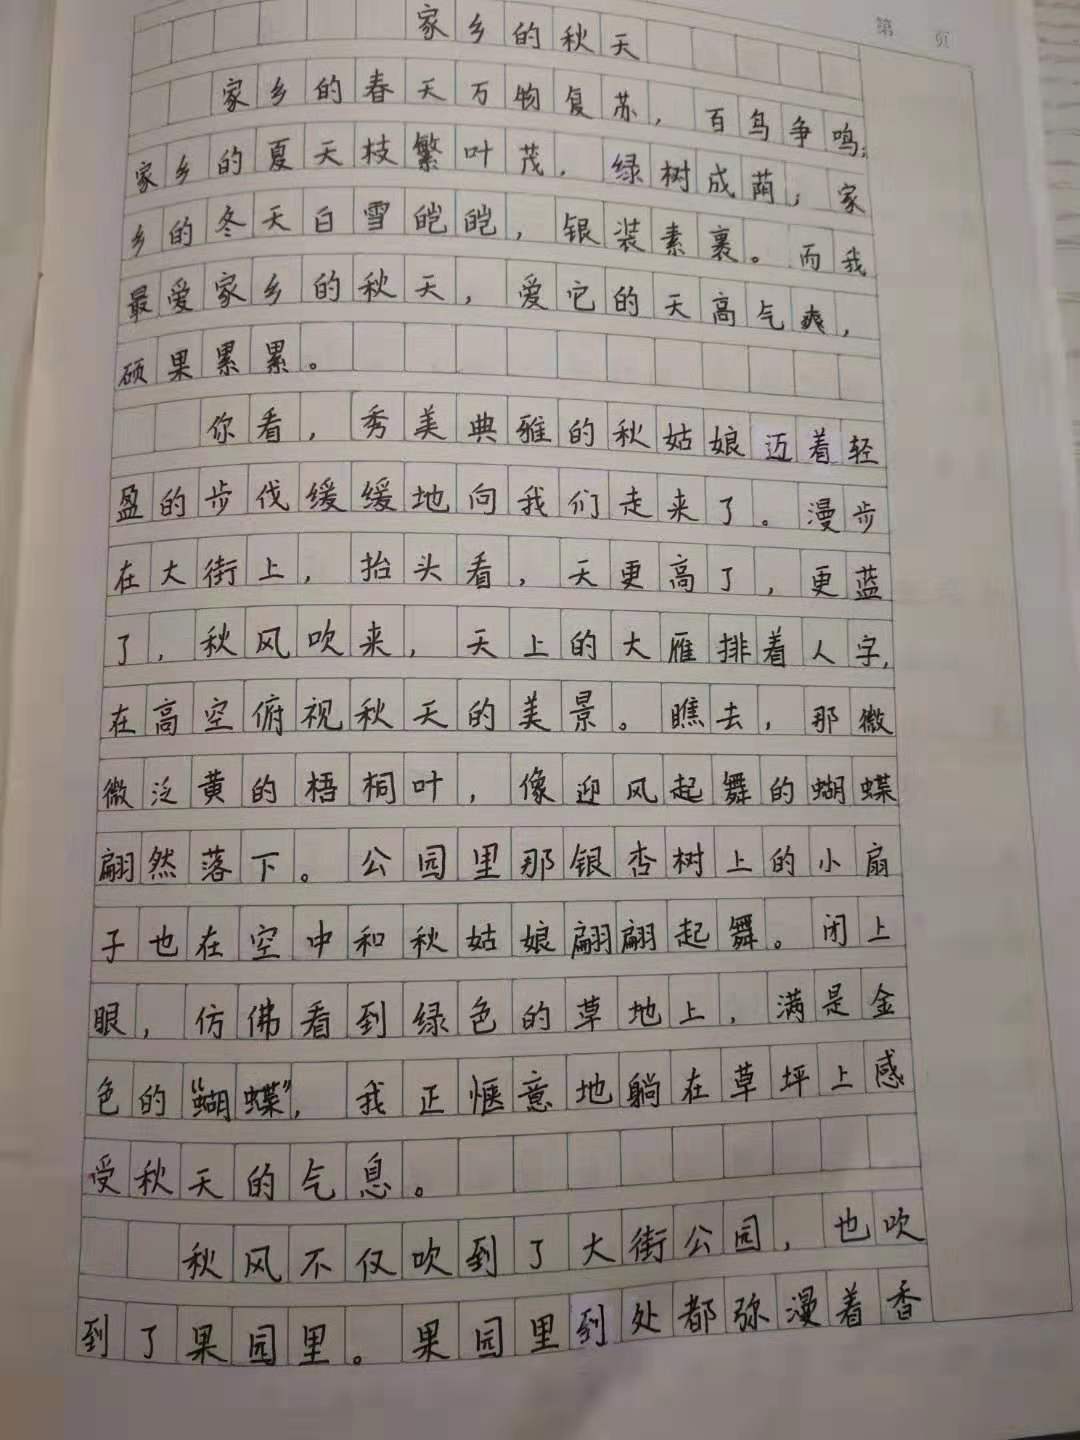 第 页
家乡的秋天
家乡的春天万物复苏，百鸟争鸣，
家乡的夏天枝繁叶茂，绿树成荫，家
乡的冬天白雪皑皑，银装素裹。而我
最爱家乡的秋天，爱它的天高气爽，
硕果累累。
你看，秀美典雅的秋姑娘迈着轻
盈的步伐缓缓地向我们走来了。漫步
在大街上，抬头看，天更高了，更蓝
了，秋风吹来，天上的大雁排着人字，
在高空俯视秋天的美景。瞧去，那微
微泛黄的梧桐叶，像迎风起舞的蝴蝶
翩然落下。公园里那银杏树上的小扇
子也在空中和秋姑娘翩翩起舞。闭上
眼，仿佛看到绿色的草地上，满是金
色的“蝴蝶”，我正惬意地躺在草坪上感
受秋天的气息。
秋风不仅吹到了大街公园，也吹
到了果园里。果园里到处都弥漫着香